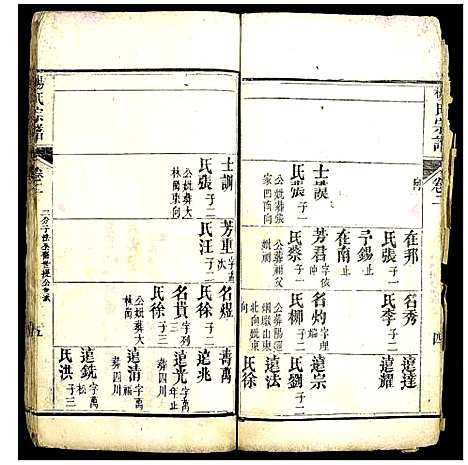 楊氏宗譜
卷二
四
在邦
氏張子一
名秀
氏李子二
遠達
遠耀
予錫止
在南止
士謨
氏張子一
公妣葬張
家凹南向
芳君字依
仲
氏蔡子一
公葬福父
妣
名灼字理
氏柳子二
公葬陽逕
山東
北向妣東
向
遠宗
氏劉子二
遠法
氏徐
士訓
氏張子二
公妣葬大
林南東向
芳重字
氏汪子二
名煜
氏徐子二
壽萬
遠兆
名貢字列
三
氏徐子三
公妣葬大
林南
遠光字萬
年止
葬四川
遠清字萬
福
葬四川
遠銑字萬
松
氏洪子三
楊氏宗譜
卷二
五